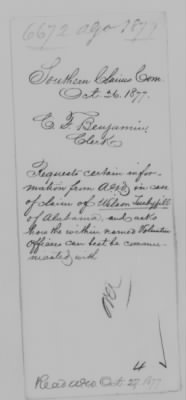 6672 AGO 1877
Southern Claims Com.
Oct. 26. 1877.
E. F. Benjamin,
Clerk
Requests certain infor-
mation from AGO in case
of claim of Wilson
of Alabama, and asks
how the within named Volunteer
officers can best be commu-
nicated with
4
Read AGO Oct. 27 1877